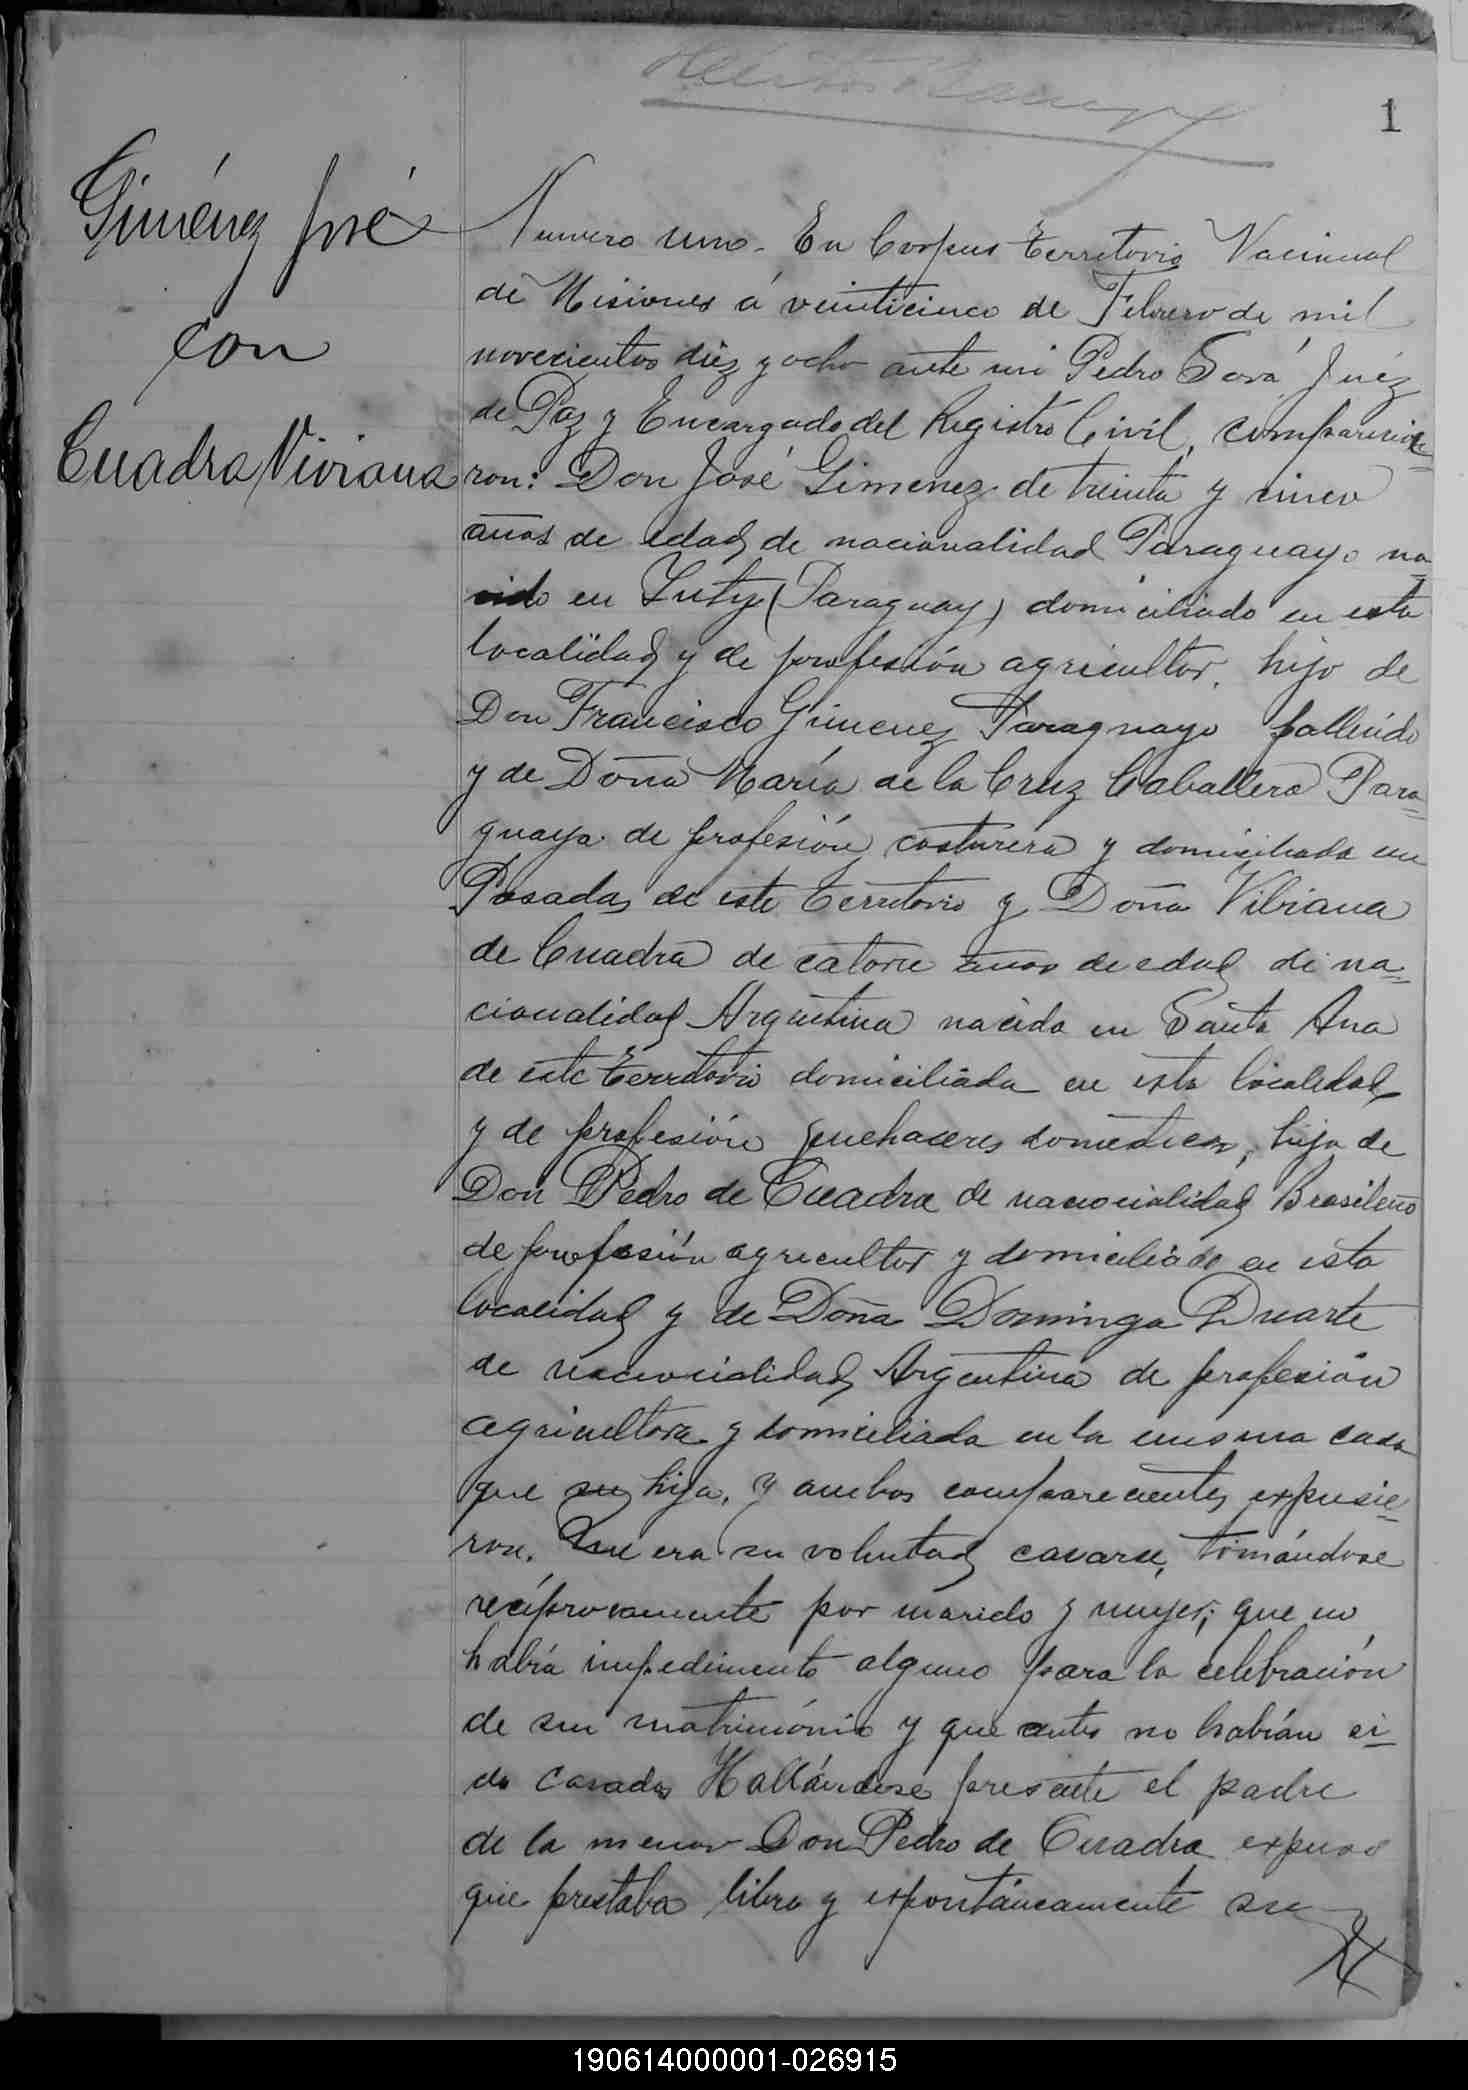 1
Giménez José
con
Cuadra Viviana
Numero uno. En Corpus Territorio Nacional
de Misiones á veinticinco de Febrero de mil
novecientos diez y ocho ante mi Pedro Juez
de Paz y Encargado del Registro Civil, comparecie=
ron: Don José Gimenez de treinta y cinco
años de edad de nacionalidad Paraguayo na
cido en Yuty (Paraguay) domiciliado en esta
localidad y de profesión agricultor, hijo de
Don Francisco Gimenez Paraguayo fallecido
y de Doña María de la Cruz Caballero Para=
guaya de profesión costurera y domiciliada en
Posadas de este territorio y Doña Vibiana
de Cuadra de catorce años de edad de na=
cionalidad Argentina nacida en Santa Ana
de este territorio domiciliada en esta localidad
y de profesión quehaceres domesticos, hija de
Don Pedro de Cuadra de nacionalidad Brasileño
de profesión agricultor y domiciliado en esta
localidad y de Doña Dominga Duarte
de nacionalidad Argentina de profesión
agricultora y domiciliada en la misma casa
que su hija, y ambos comparecientes expusie=
ron. Que era su voluntad casarse, tomándose
recíprocamente por marido y mujer; que no
habia impedimento alguno para la celebración
de su matrimónio y que antes no habían si=
do casados Hallándose presente el padre
de la menor Don Pedro de Cuadra expuso
que prestaba libre y espontáneamente su
190614000001-026915